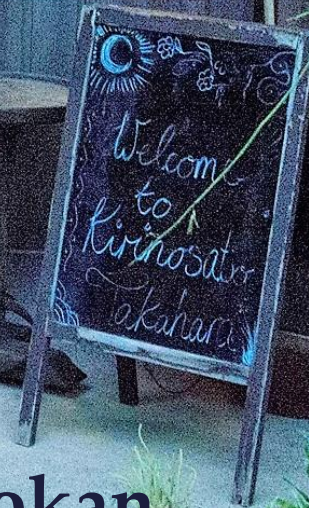 Welcome
to
Kirinosato
Takahara
okan